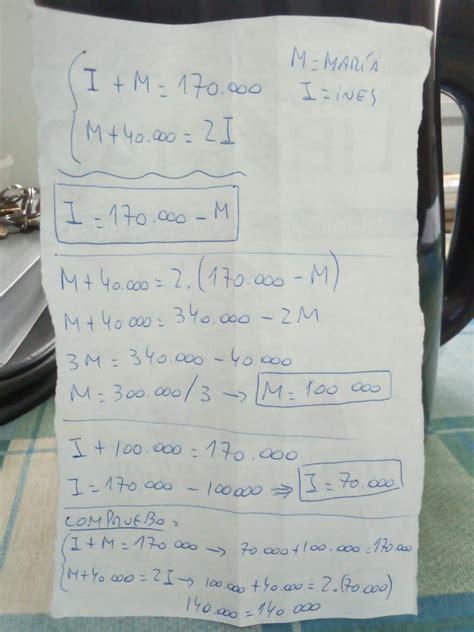 I + M = 170.000
M = MARÍA
I = INES
M + 40.000 = 2I
I = 170.000 - M
M + 40.000 = 2.(170.000 - M)
M + 40.000 = 340.000 - 2M
3M = 340.000 - 40.000
M = 300.000/3 → M = 100 000
I + 100.000 = 170.000
I = 170 000 - 100 000 ⇒ I = 70.000
COMPRUEBO:
I + M = 170 000 → 70 000 + 100.000 = 170.000
M + 40.000 = 2I → 100.000 + 40.000 = 2.(70.000)
140.000 = 140.000